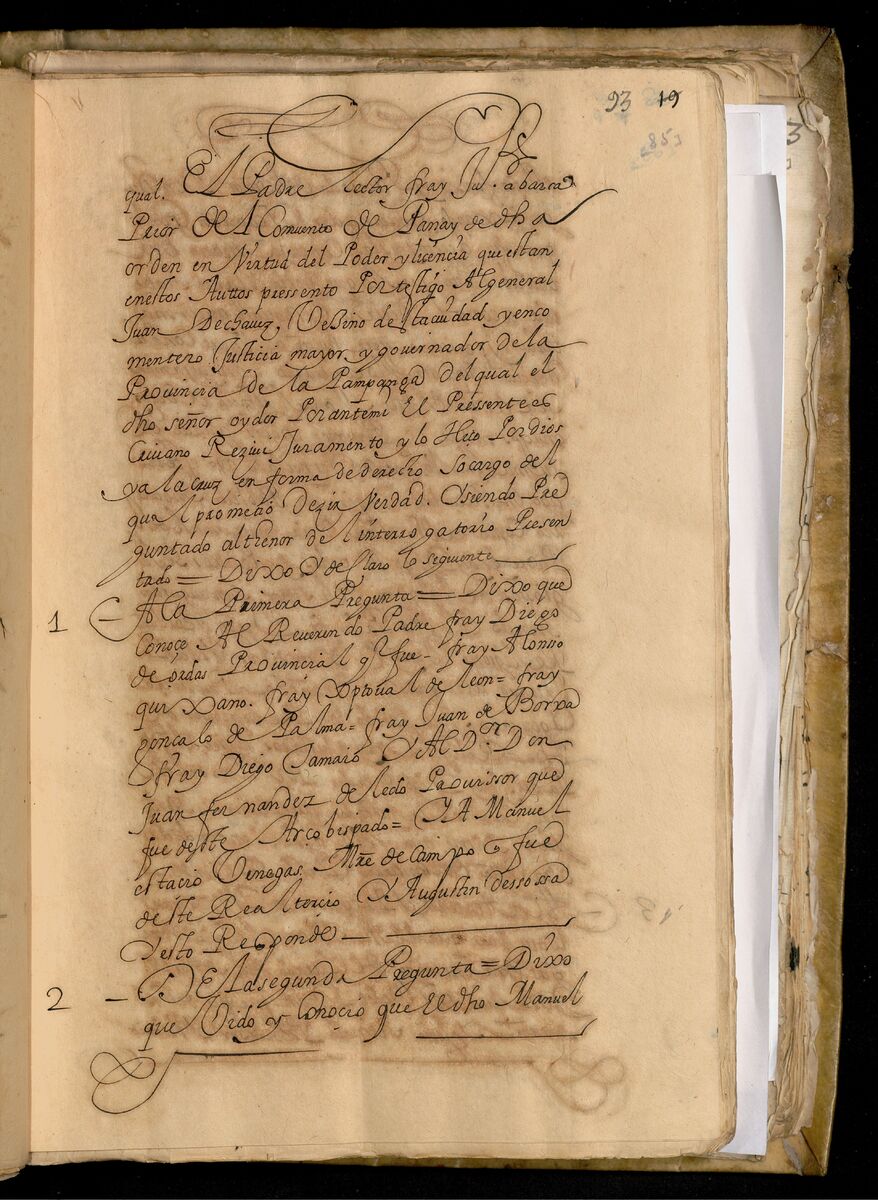 93 19
85
qual. El Padre lector fray Ju.º abarca
Prior del Comuento de Panay de dha
orden en Virtud del Poder y licencia que estan
enestos Auttos pressento Por testigo Al general
Juan Dechavez, Vezino de esta ciudad y enco
mentero Justicia mayor y governador de la
Provincia de la Pampanga del qual el
dho señor oydor Por antemi El Pressente es
crivano Rezivi Juramento y lo Hizo Por dios
y a la cruz en forma de derecho so cargo del
qual prometio Dezir Verdad. Y siendo Pre
guntado al thenor del interrogatorio Presen
tado = Dixo Y declaro lo seguiente
1 – A la Primera Pregunta = Dixo que
Conoce Al Reverendo Padre fray Diego
de ordas Provincial q fue – fray Alonso
quixano. fray Xptoual de leon = fray
gonçalo de Palma = fray Juan de Borxa
fray Diego Tamaio Y Al D.or Don
Juan fernandez de ledo Prouissor que
fue deste Arçobispado = Y A Manuel
estacio Venegas Mre de Campo q fue
deste Real tercio Y Augustin dessossa
Y esto Responde
2 – De la segunda Pregunta = Dixo
que Vido y Conocio que El dho Manuel